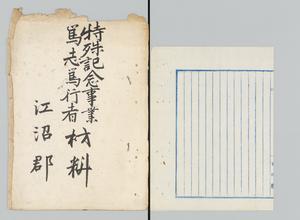 特殊記念事業
篤志篤行者材料
江沼郡